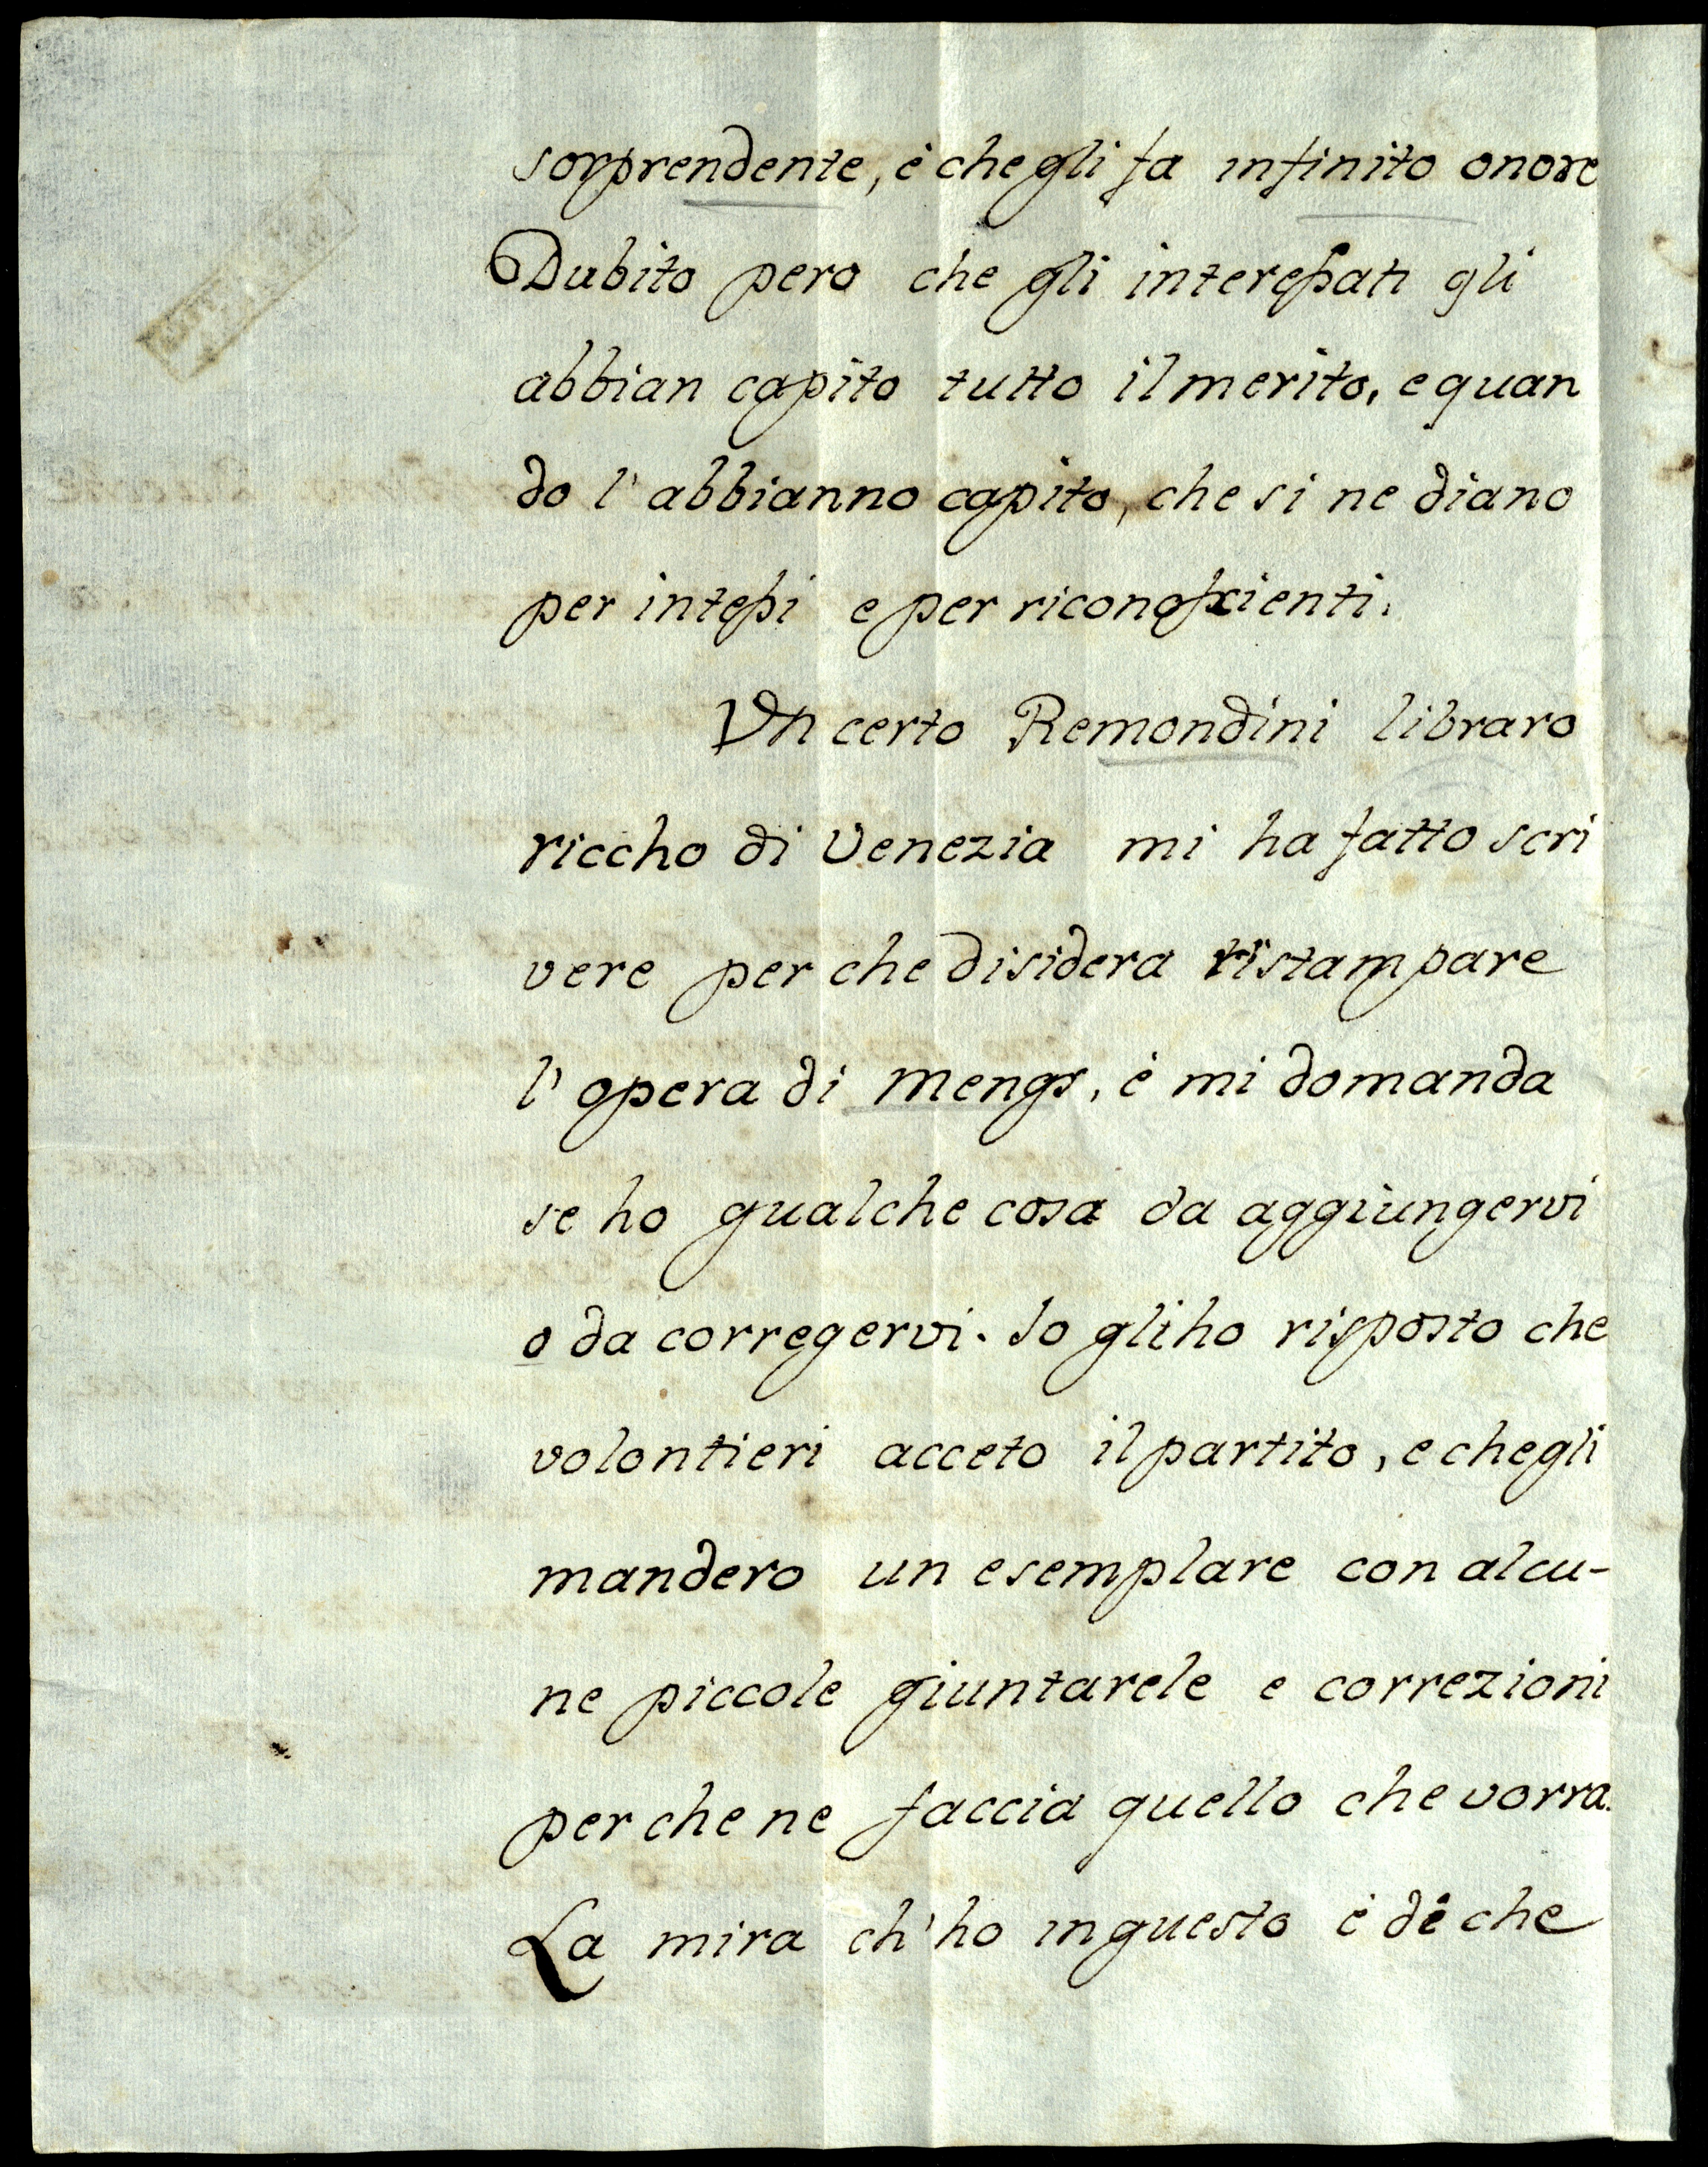 sorprendente, è che gli fa infinito onore
Dubito pero che gli interessati gli
abbian capito tutto il merito, e quan
do l'abbianno capito, che si ne diano
per intessi e per riconosscienti.
Un certo Remondini libraro
riccho di Venezia mi ha fatto scri
vere per che disidera ristampare
l'opera di Mengs, è mi domanda
se ho qualche cosa da aggiungervi
o da corregervi. Io gli ho risposto che
volontieri acceto il partito, e che gli
mandero un esemplare con alcu-
ne piccole giuntarele e correzioni
per che ne faccia quello che vorra.
La mira ch'ho in questo è di che